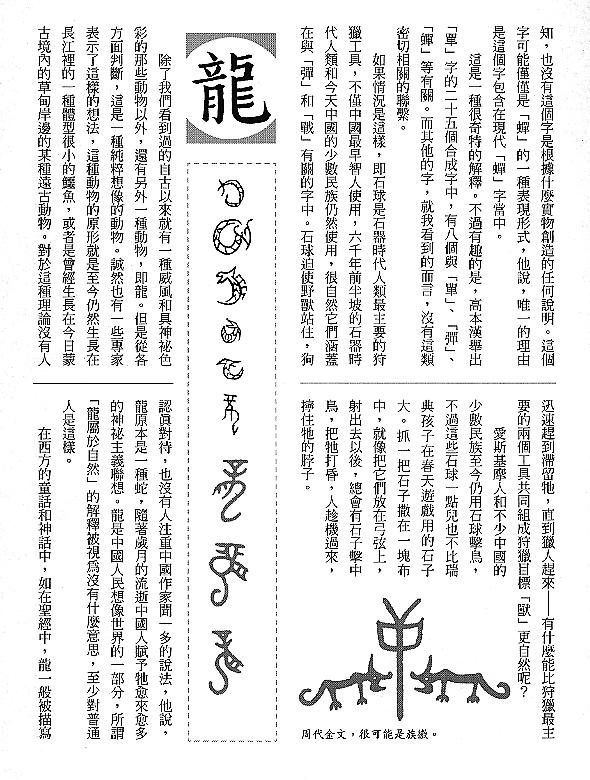 知，也沒有這個字是根據什麼實物創造的任何說明。這個
字可能僅僅是「蟬」的一種表現形式，他說，唯一的理由
是這個字包含在現代「蟬」字當中。
這是一種很奇特的解釋。不過有趣的是，高本漢舉出
「單」字的二十五個合成字中，有八個與「單」、「彈」、
「蟬」等有關。而其他的字，就我看到的而言，沒有這類
密切相關的聯繫。
如果情況是這樣，即石球是石器時代人類最主要的狩
獵工具，不僅中國最早智人使用，六千年前半坡的石器時
代人類和今天中國的少數民族仍然使用，很自然它們涵蓋
在與「彈」和「戰」有關的字中。石球迫使野獸站住，狗
迅速趕到滯留牠，直到獵人趕來──有什麼能比狩獵最主
要的兩個工具共同組成狩獵目標「獸」更自然呢？
愛斯基摩人和不少中國的
少數民族至今仍用石球擊鳥，
不過這些石球一點兒也不比瑞
典孩子在春天遊戲用的石子
大。抓一把石子撒在一塊布
中，就像把它們放在弓弦上，
射出去以後，總會有石子擊中
鳥，把牠打昏，人趁機過來，
擰住牠的脖子。
周代金文，很可能是族徽。
龍
除了我們看到過的自古以來就有一種威風和具神祕色
彩的那些動物以外，還有另外一種動物，即龍。但是從各
方面判斷，這是一種純粹想像的動物。誠然也有一些專家
表示了這樣的想法，這種動物的原形就是至今仍然生長在
長江裡的一種體型很小的鱷魚，或者是曾經生長在今日蒙
古境內的草甸岸邊的某種遠古動物。對於這種理論沒有人
認真對待，也沒有人注重中國作家聞一多的說法，他說，
龍原本是一種蛇，隨著歲月的流逝中國人賦予牠愈來愈多
的神祕主義聯想。龍是中國人民想像世界的一部分，所謂
「龍屬於自然」的解釋被視為沒有什麼意思，至少對普通
人是這樣。
在西方的童話和神話中，如在聖經中，龍一般被描寫